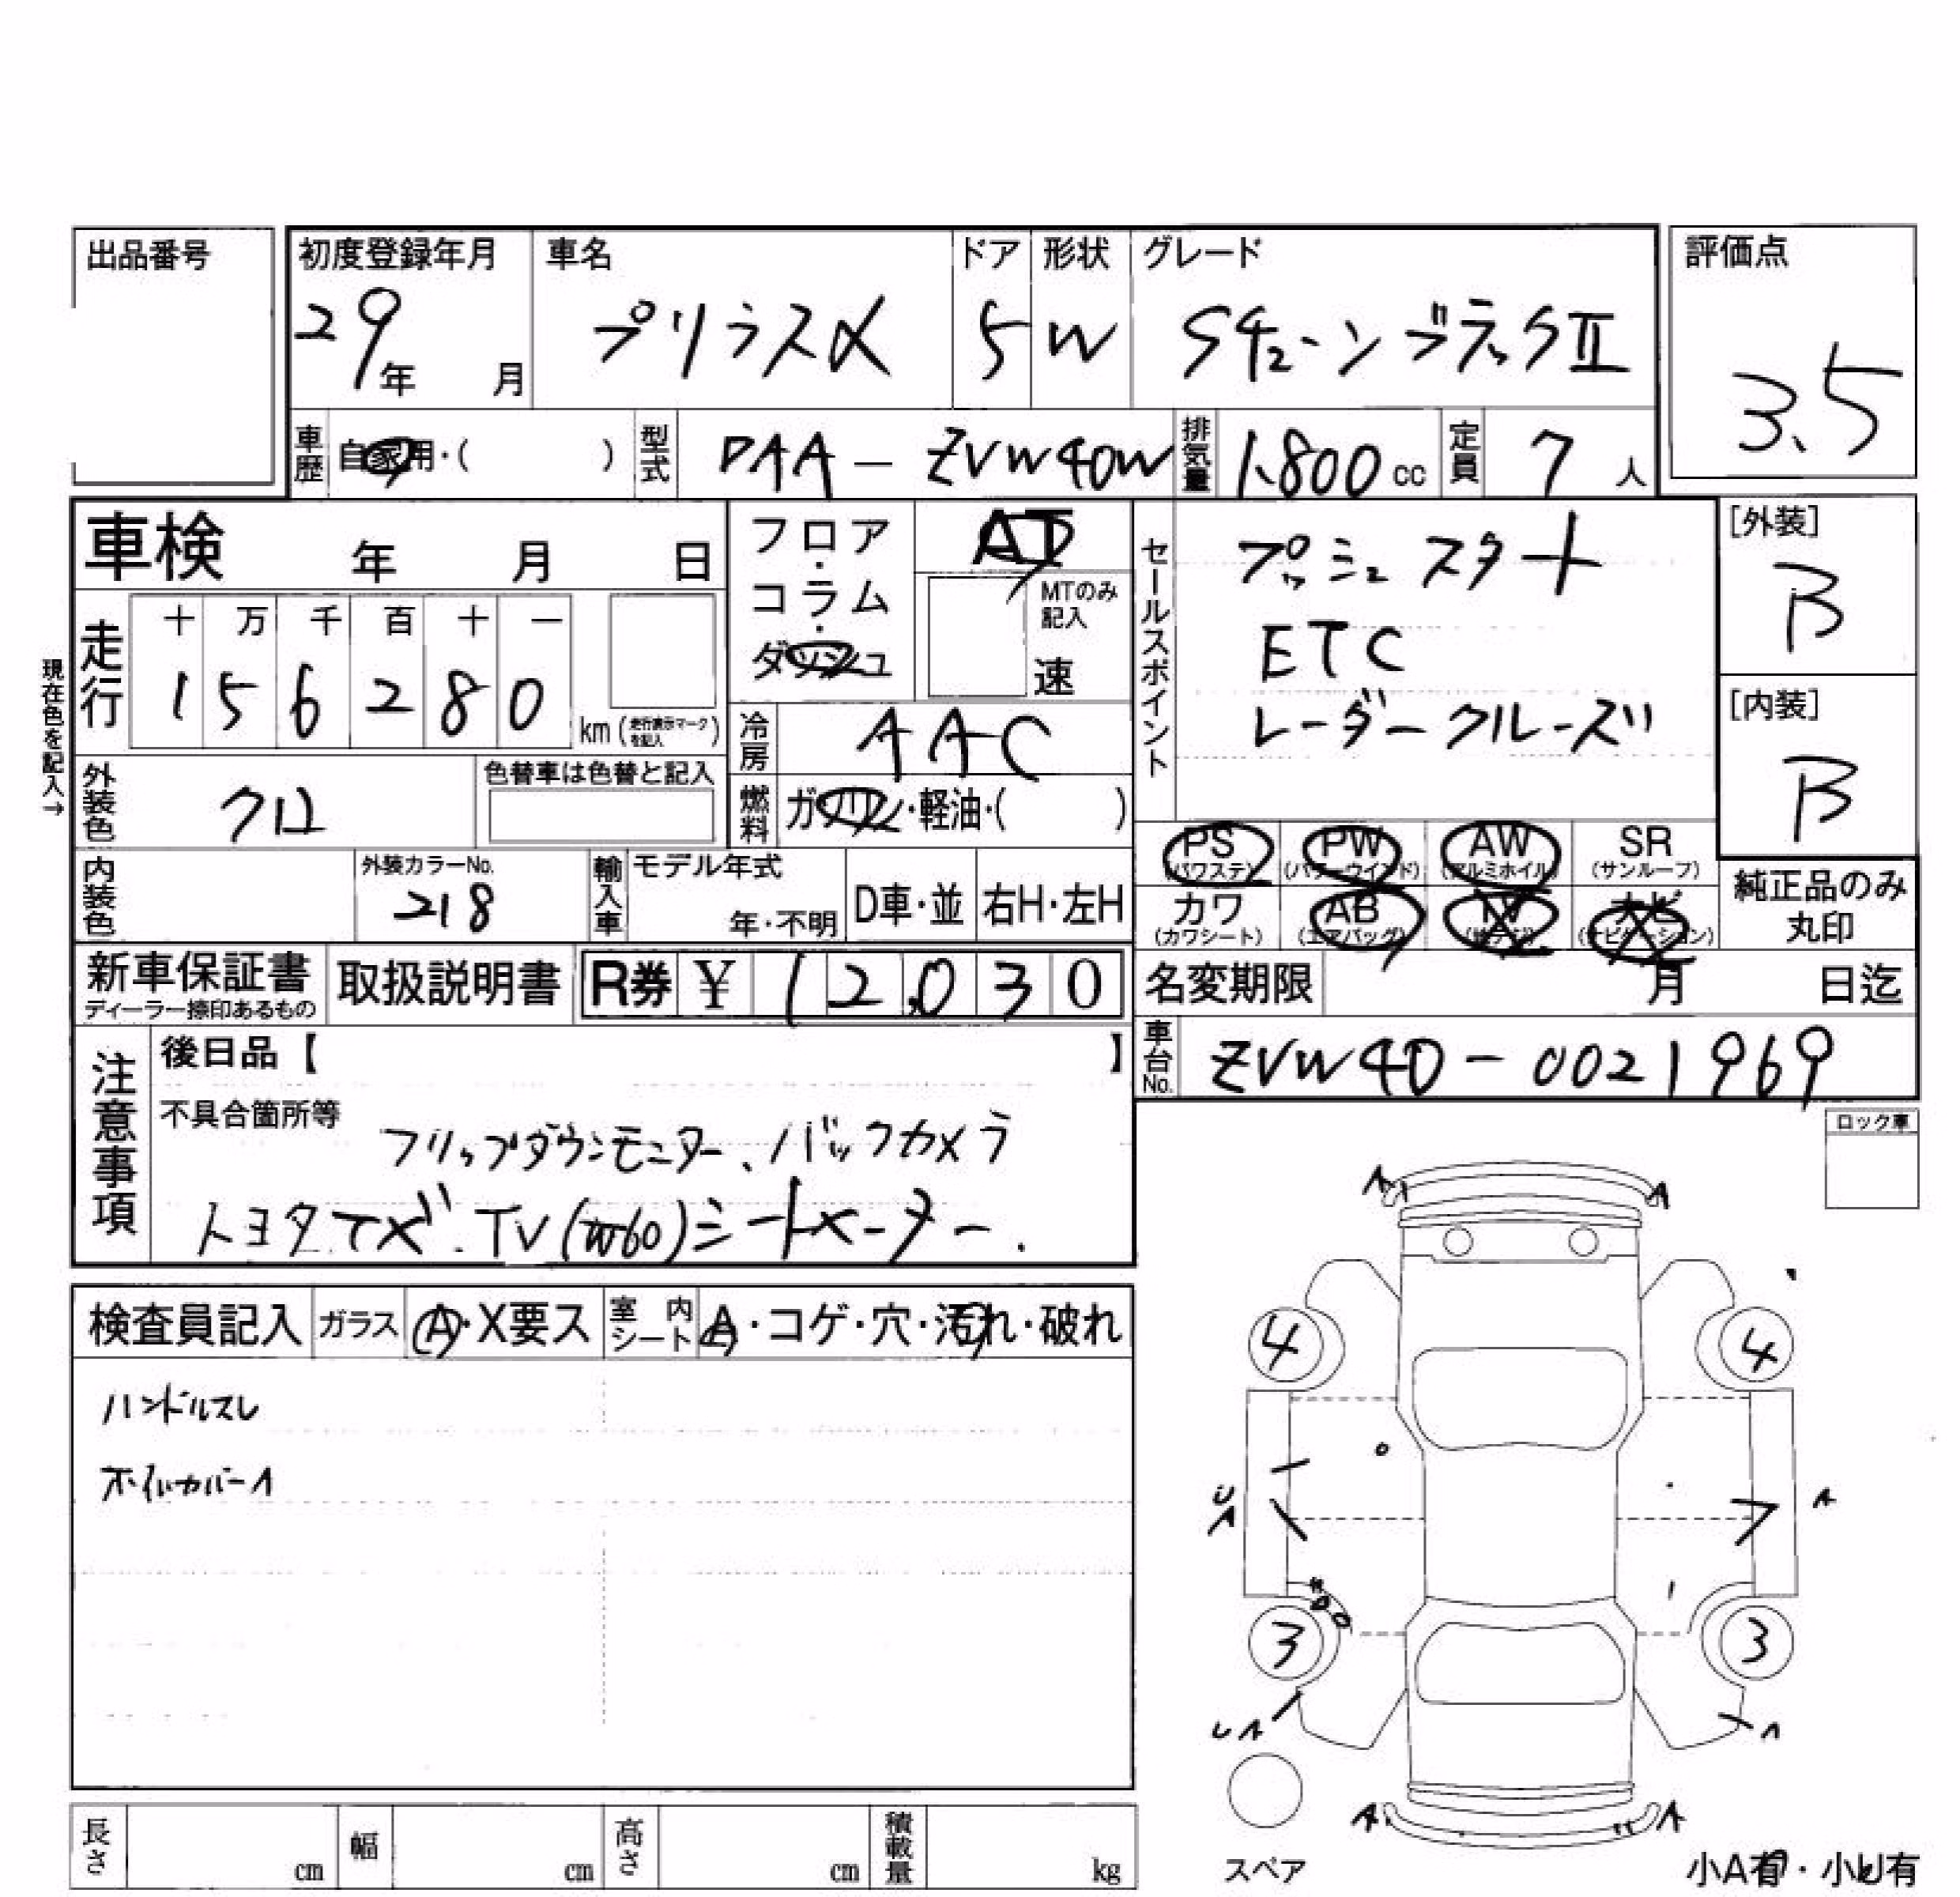 出品番号
初度登録年月 車名 ドア 形状 グレード 評価点
29年 月 プリウスα 5 W SチューンブラックⅡ 3.5
車歴 自家用・( ) 型式 DAA-ZVW40W 排気量 1.800cc 定員 7人
車検 年 月 日
フロア・コラム・ダッシュ AT
MTのみ記入 速
セールスポイント
プッシュスタート
ETC
レーダークルーズ
[外装]
B
[内装]
B
現在色を記入→
走行 十 万 千 百 十 一
1 5 6 2 8 0 km(走行表示マークを記入)
冷房 AAC
外装色 クロ 色替車は色替と記入
燃料 ガソリン・軽油・( )
PS(パワステ) PW(パワーウインド) AW(アルミホイル) SR(サンルーフ)
カワ(カワシート) AB(エアバッグ) TV(地デジ) ナビ(ナビゲーション)
純正品のみ丸印
内装色 外装カラーNo. 218 輸入車 モデル年式 年・不明 D車・並 右H・左H
新車保証書 ディーラー捺印あるもの 取扱説明書 R券 ¥ 12,030
名変期限 月 日迄
車台No. ZVW40-0021969
注意事項 後日品【 】
不具合箇所等 フリップダウンモニター、バックカメラ
トヨタナビ.TV(W60)シートヒーター.
ロック車
検査員記入 ガラス A・X要ス 室内シート A・コゲ・穴・汚れ・破れ
ハンドルスレ
ホイルカバーA
A A
4 4
U
A A
3 3
UA A
A A
スペア
小A有・小U有
長さ cm 幅 cm 高さ cm 積載量 kg